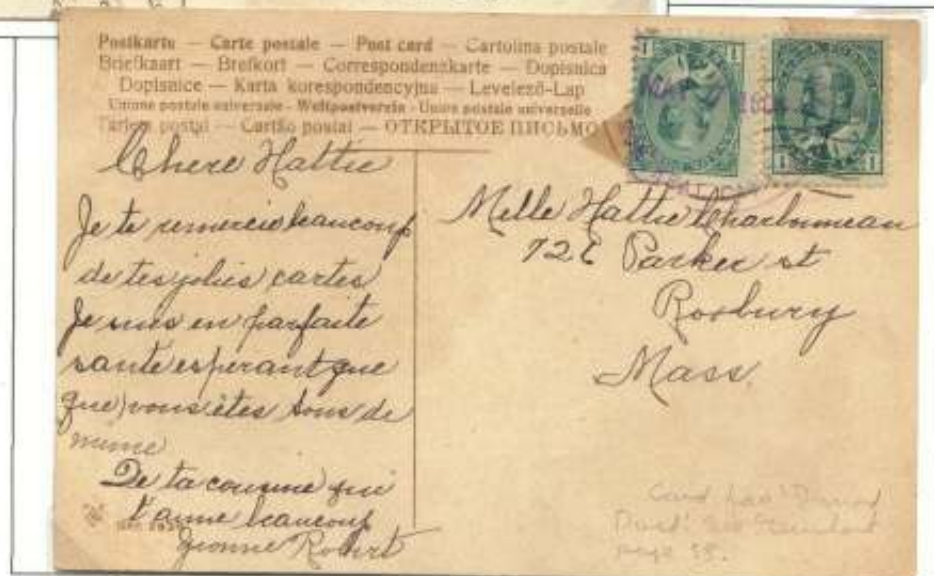 Postkarte — Carte postale — Post card — Cartolina postale
Briefkaart — Brefkort — Correspondenzkarte — Dopisnica
Dopisnice — Karta korespondencyjna — Levelező-Lap
Unione postale universale - Weltpostverein - Union postale universelle
Tarjeta postal — Cartão postal — ОТКРЫТОЕ ПИСЬМО
1 1
1 1
Chere Hattie
Je te remercie beaucoup
de tes jolies cartes
Je suis en parfaite
santé esperant que
que vous êtes tous de
même
De ta cousine qui
t'aime beaucoup
Yvonne Robert
Melle Hattie Charbonneau
72 E Parker st
Roxbury
Mass.
Card has
page